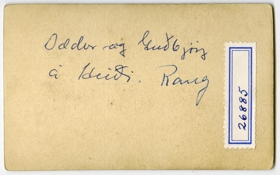 Oddur og Guðbjörg
á Heiði. Rang
26885